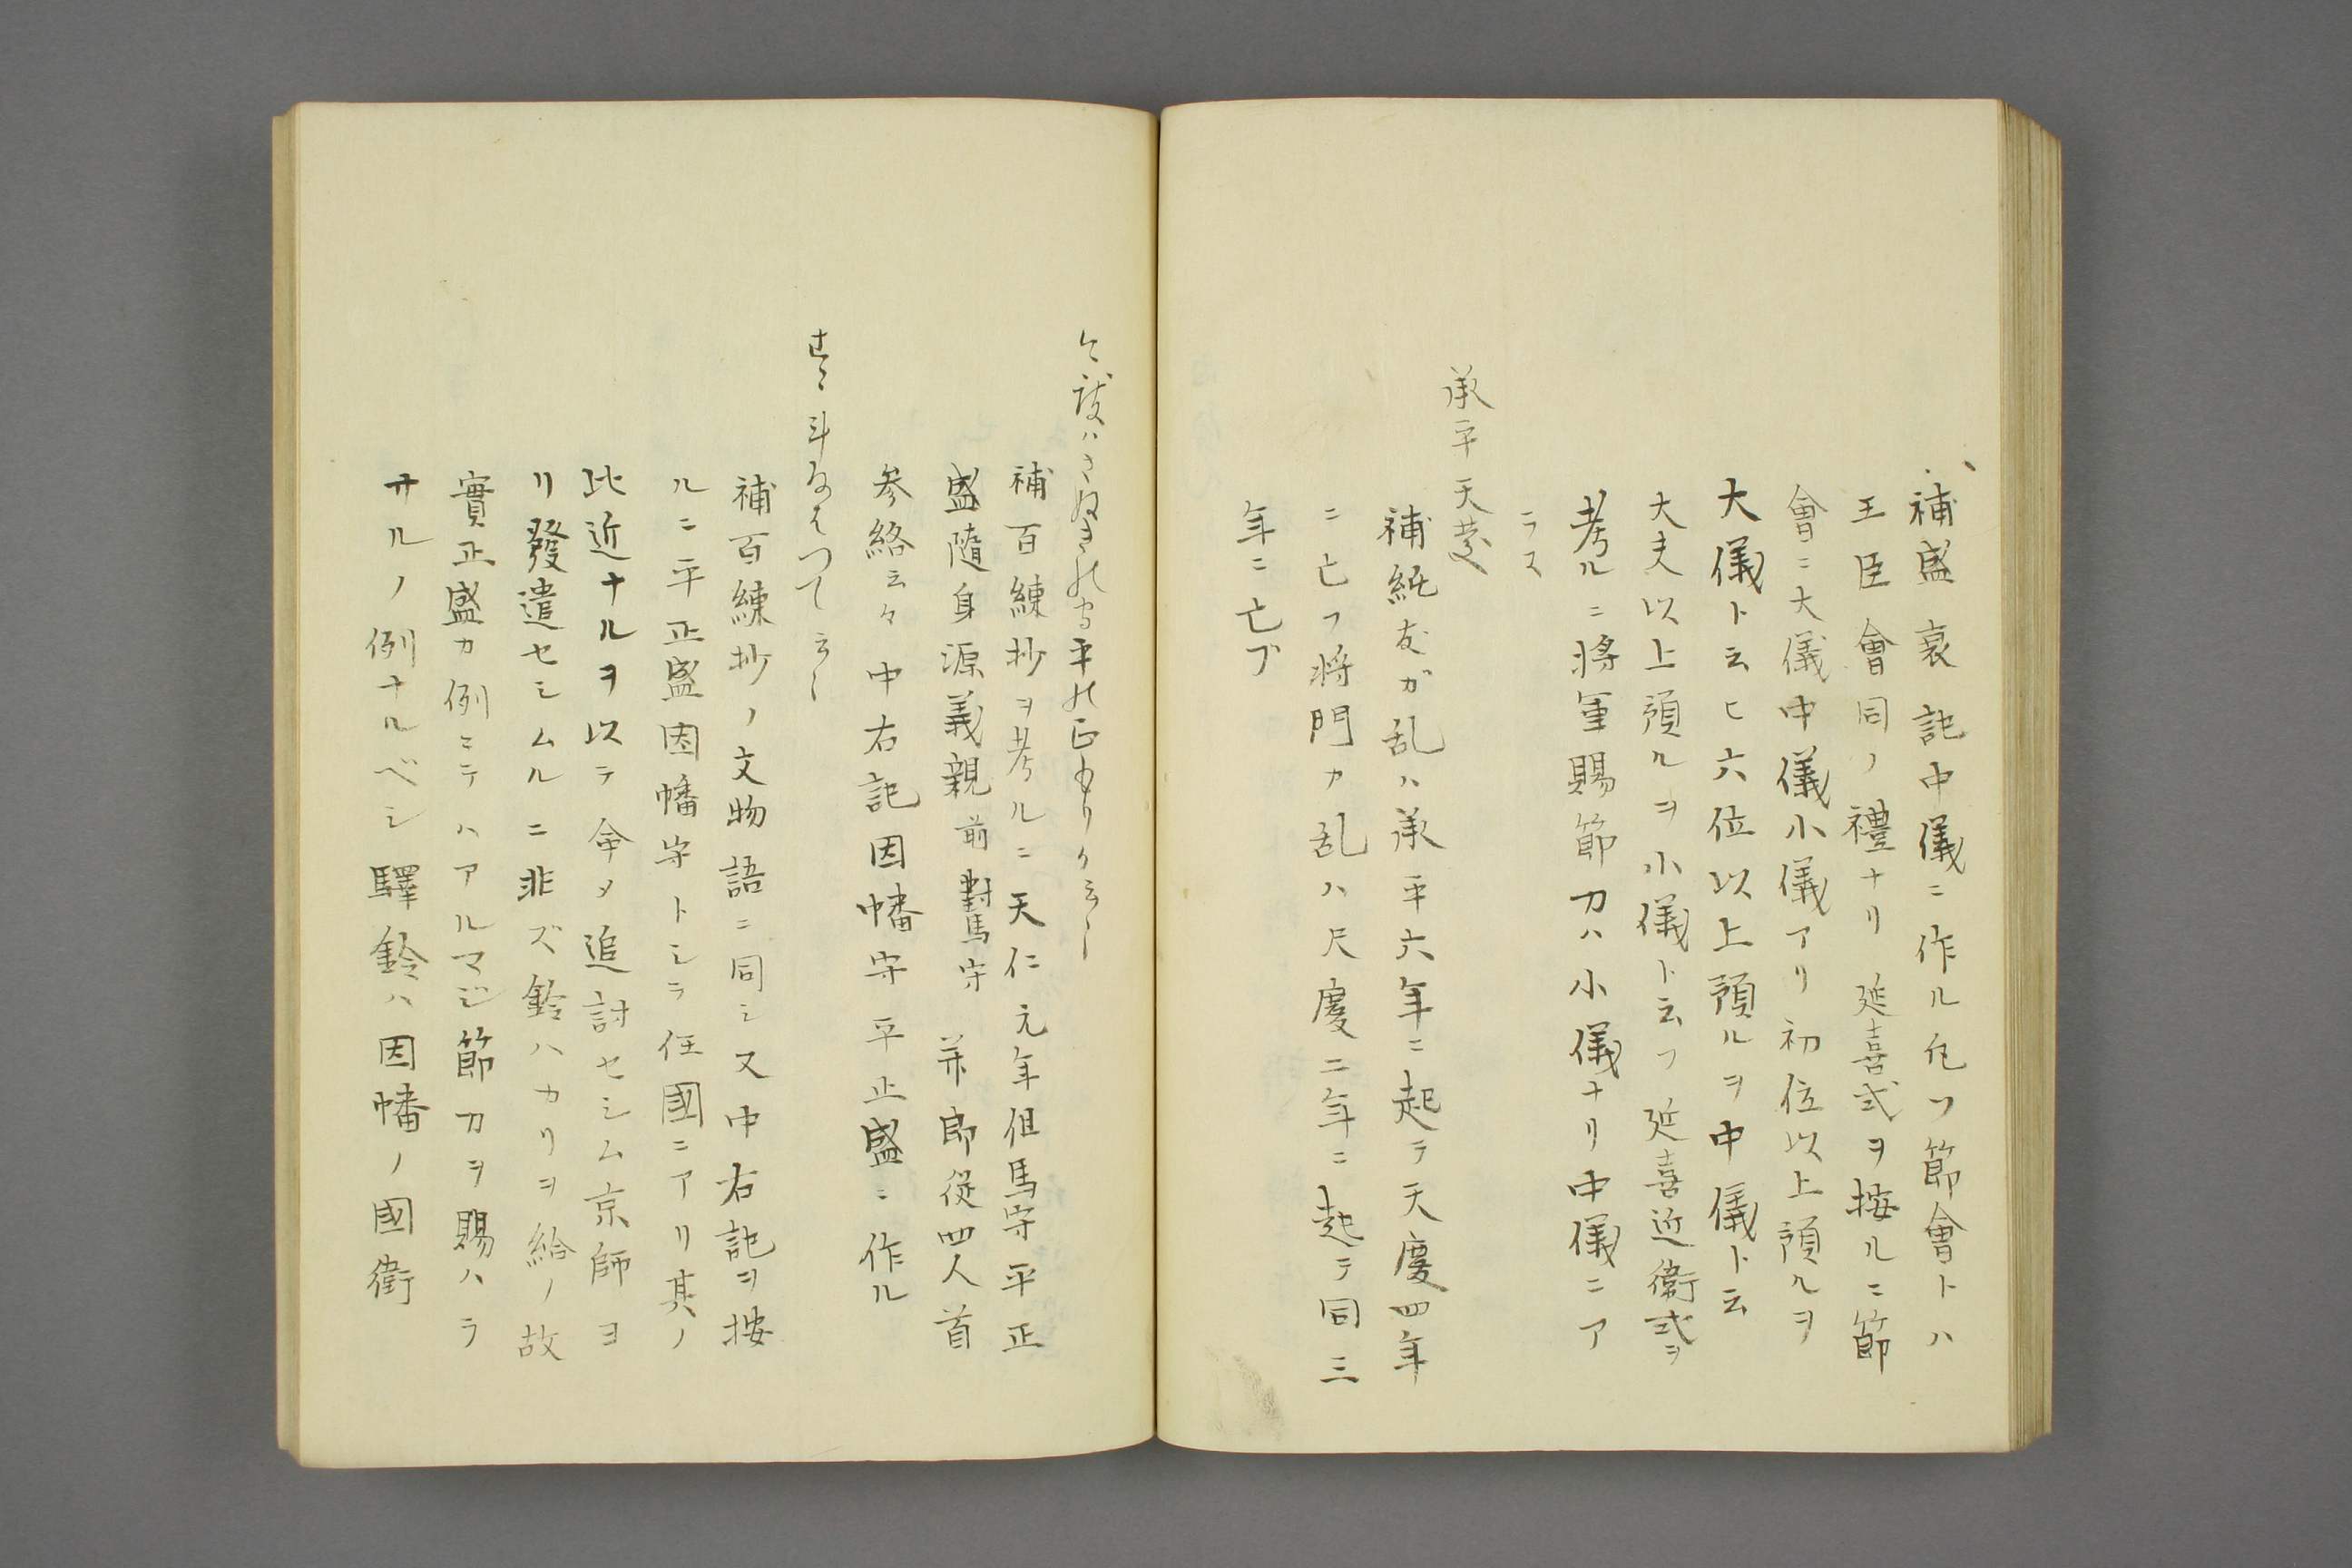 補盛衰記中儀ニ作ル凢ソ節會トハ
王臣會同ノ禮ナリ延喜式ヲ按ルニ節
會ニ大儀中儀小儀アリ初位以上預ルヲ
大儀ト云ヒ六位以上預ルヲ中儀ト云
大夫以上預ルヲ小儀ト云フ延喜近衛式ヲ
考ルニ将軍賜節刀ハ小儀ナリ中儀ニア
ラス
承平天慶
補純友ガ乱ハ承平六年ニ起テ天慶四年
ニ亡フ将門カ乱ハ天慶二年ニ起テ同三
年ニ亡ブ
ハさぬきの守平の正もり云〻
補百練抄ヲ考ルニ天仁元年但馬守平正
盛随身源義親前對馬守并郎従四人首
参絡云々中右記因幡守平正盛ニ作ル
斗なはつて云〻
補百練抄ノ文物語ニ同シ又中右記ヲ按
ルニ平正盛因幡守トシテ任國ニアリ其ノ
比近ナルヲ以テ命メ追討セシム京師ヨ
リ發遣セシムルニ非ズ鈴ハカリヲ給ノ故
實正盛カ例ニテハアルマジ節刀ヲ賜ハラ
サルノ例ナルベシ驛鈴ハ因幡ノ國衙